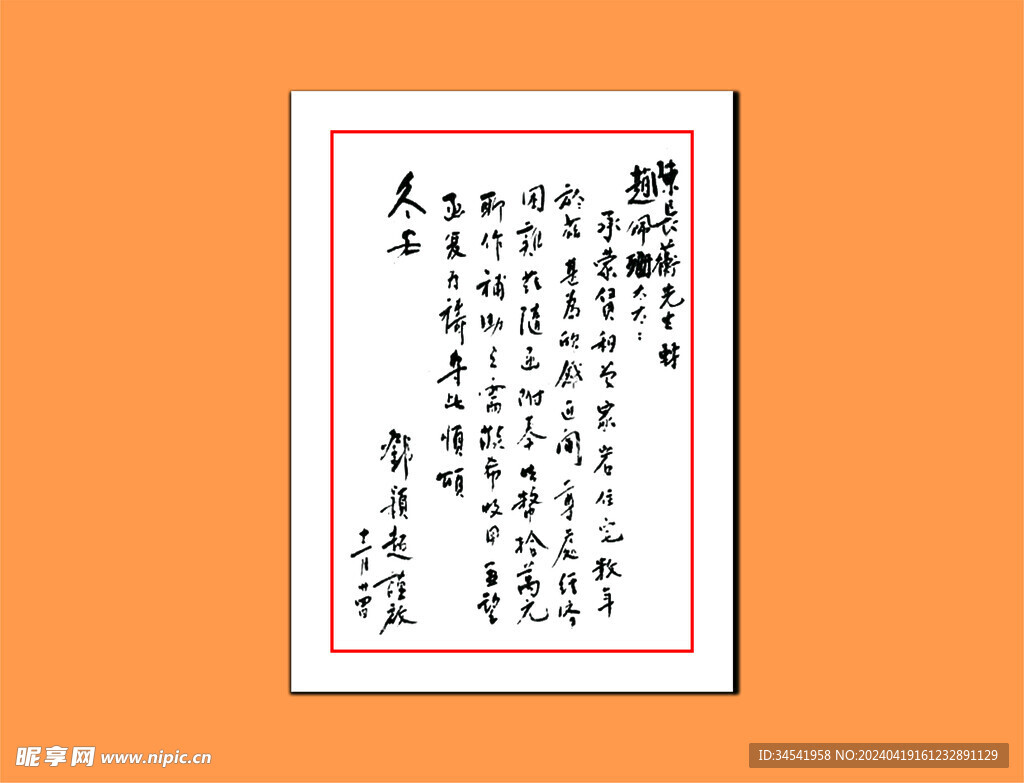 陳長蘅先生
趙佩珊太太：
承蒙貸和曾家岩住宅数年
於茲甚為欣感近聞尊處經濟
困難茲隨函附奉幣拾萬元
聊作補助之需敬希收用並望
函复为禱专此順頌
冬安
鄧穎超謹啟
十二月廿四日
昵享网 www.nipic.cn
ID:34541958 NO:20240419161232891129